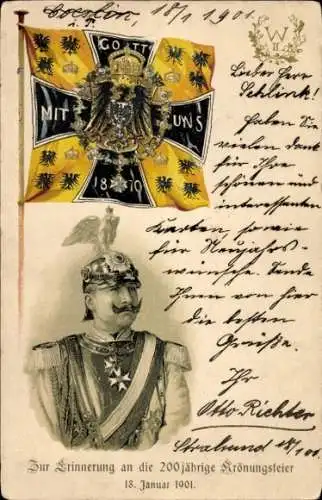 18/1 1901.
GOTT
MIT UNS
1870
W
II
Lieber Herr
Schlink!
Haben Sie
vielen Dank
für Ihre
schönen und
interessanten
Karten, sowie
für Neujahrs-
wünsche. Sende
Ihnen von hier
die besten
Grüße.
Ihr
Otto Richter
Stralsund 18/1 01.
Zur Erinnerung an die 200jährige Krönungsfeier
18. Januar 1901.